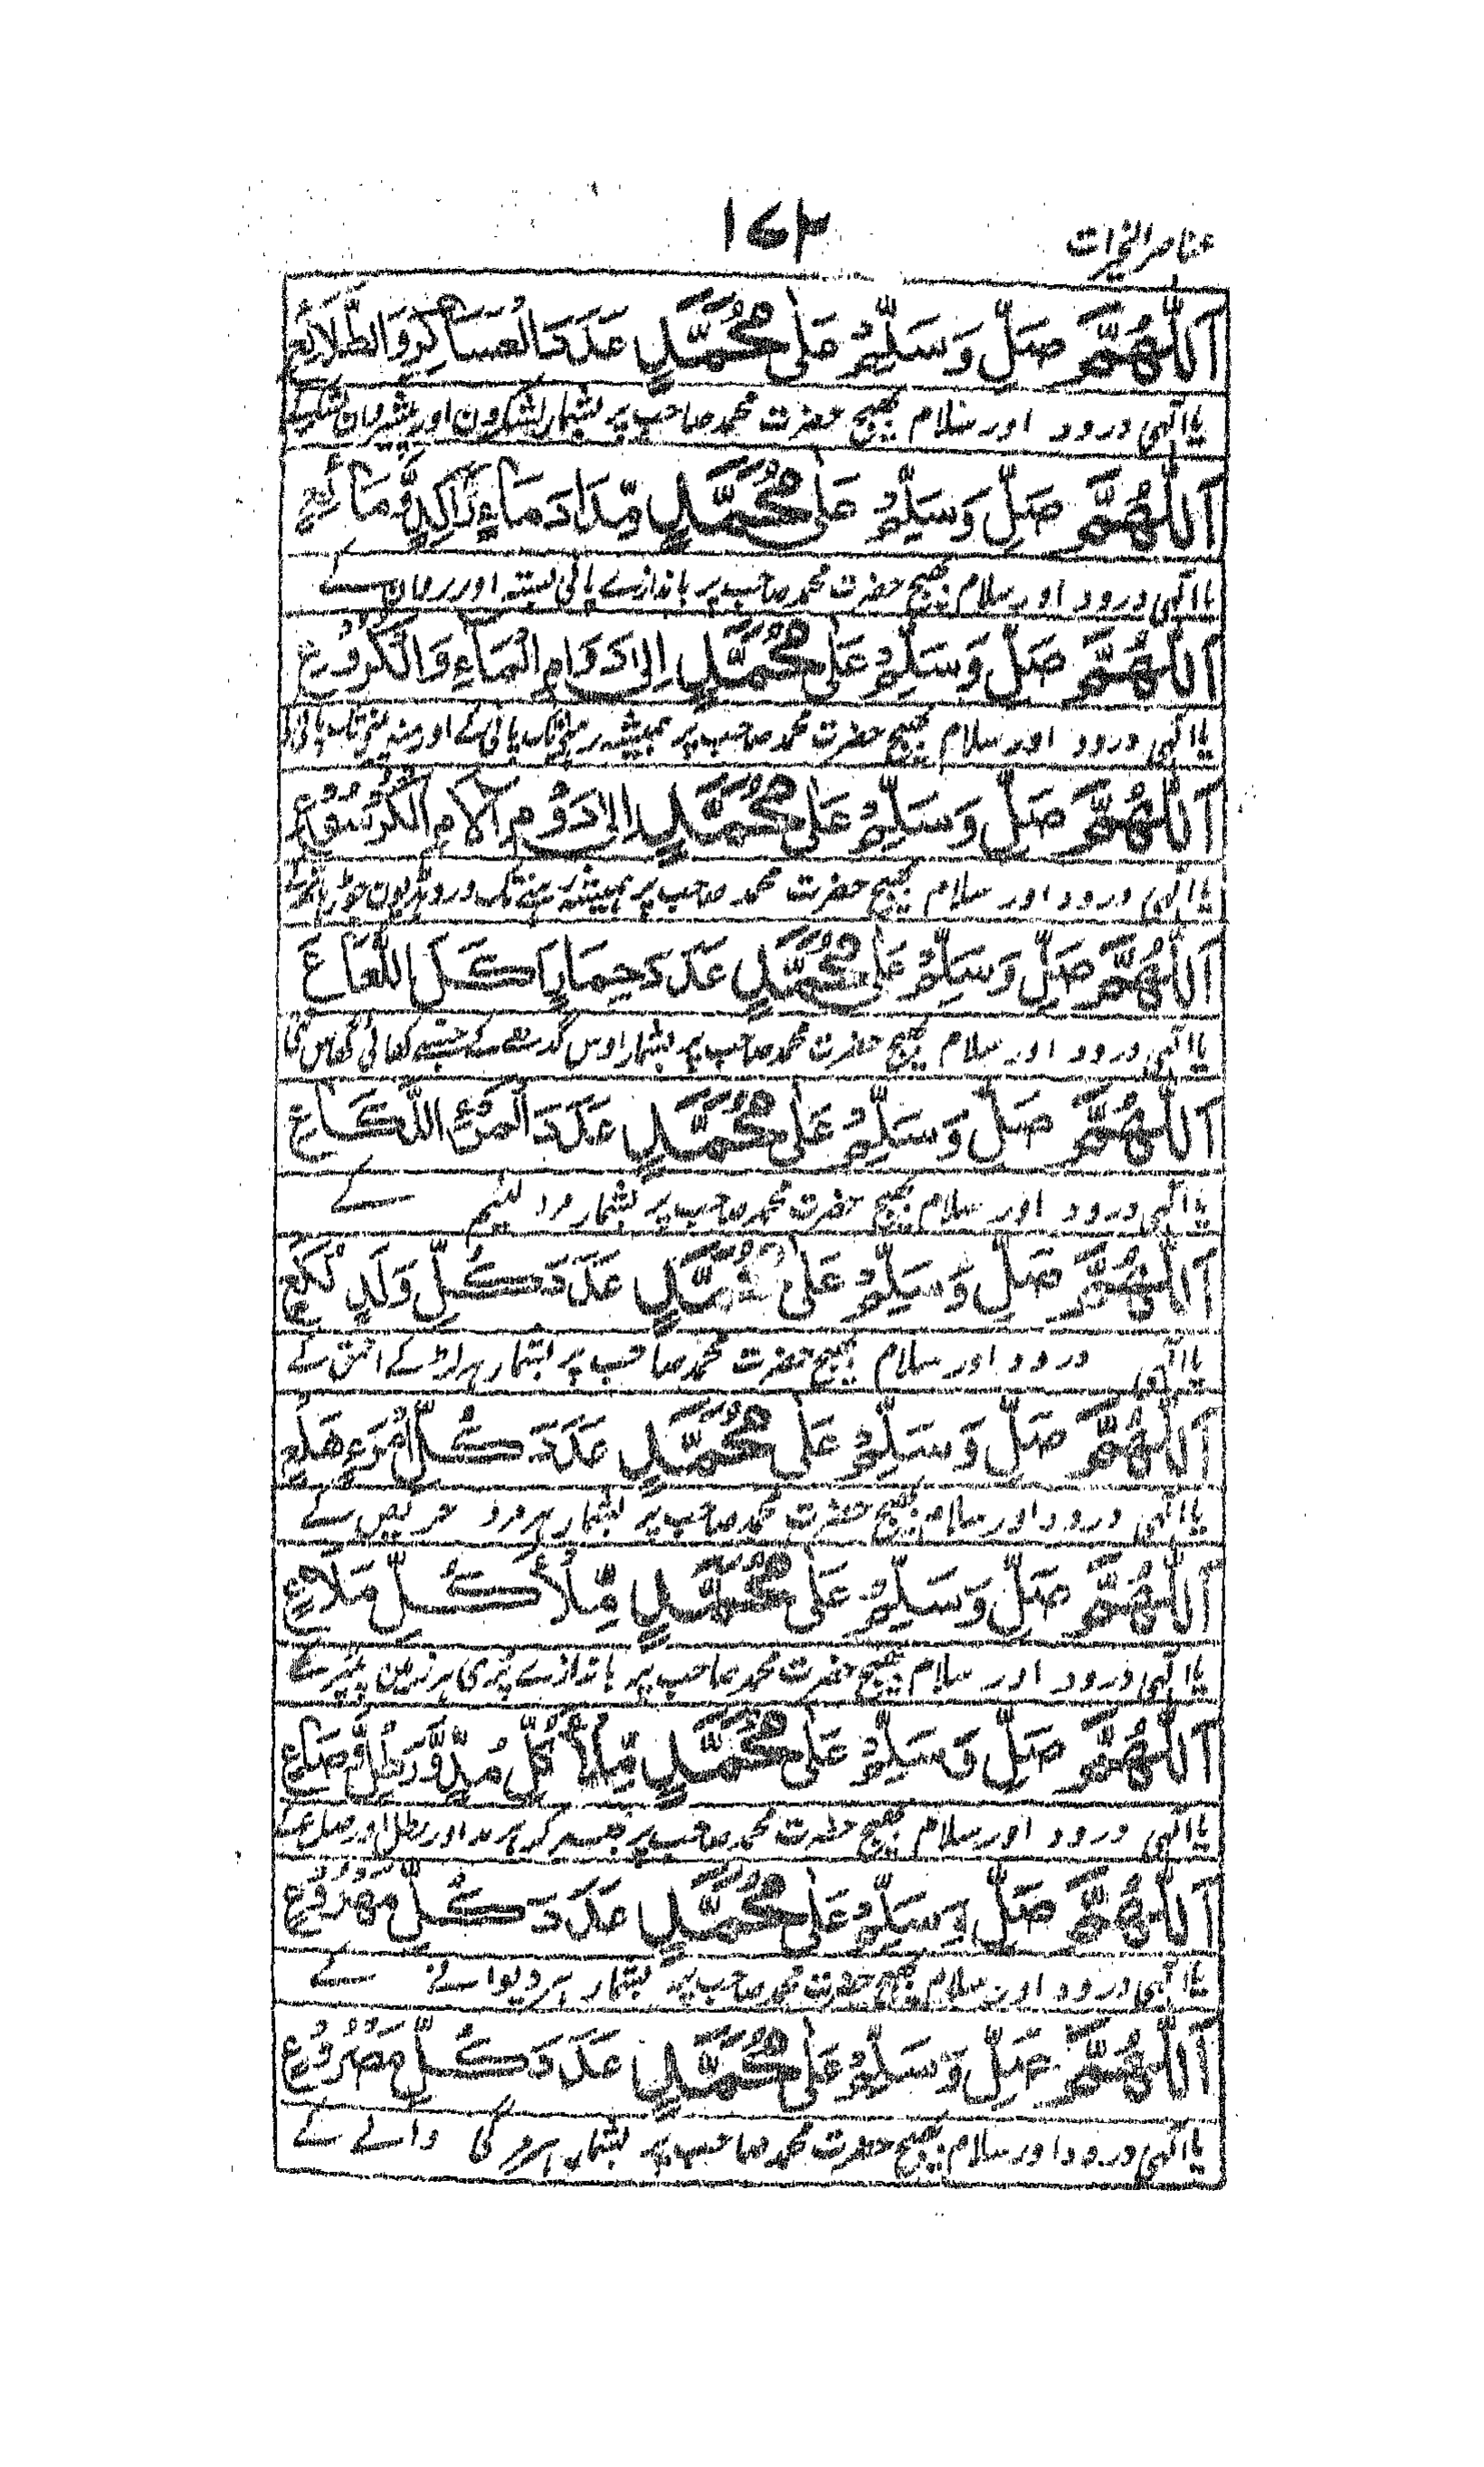 عناصر الخیرات
۱۷۴
اَللّٰهُمَّ صَلِّ وَسَلِّمْ عَلٰی مُحَمَّدٍ عَدَدَ الْعَسَاكِرِ وَالطَّلَائِعِ
یا الٰہی درود اور سلام بھیج حضرت محمد صاحب پر بشمار لشکرون اور
اَللّٰهُمَّ صَلِّ وَسَلِّمْ عَلٰی مُحَمَّدٍ مِّدَادَ مَاءٍ رَاكِدٍ وَّمَائِعٍ
یا الٰہی درود اور سلام بھیج حضرت محمد صاحب پر باندازے پانی بستہ اور روان کے
اَللّٰهُمَّ صَلِّ وَسَلِّمْ عَلٰی مُحَمَّدٍ اِلٰی دَوَامِ الْمَاءِ وَالْكُرُوْعِ
یا الٰہی درود اور سلام بھیج حضرت محمد صاحب پر ہمیشہ رہنے تک پانی کے اور
اَللّٰهُمَّ صَلِّ وَسَلِّمْ عَلٰی مُحَمَّدٍ اِلٰی دَوْمِ اٰلَامِ الْكُرْسُوْعِ
یا الٰہی درود اور سلام بھیج حضرت محمد صاحب پر ہمیشہ رہنے تک درد
اَللّٰهُمَّ صَلِّ وَسَلِّمْ عَلٰی مُحَمَّدٍ عَدَدَ حِمَارٍ اَكَلَ اللُّعَاعَ
یا الٰہی درود اور سلام بھیج حضرت محمد صاحب پر بشمار اوس گدھے کے جسنے کھائی گھاس کی
اَللّٰهُمَّ صَلِّ وَسَلِّمْ عَلٰی مُحَمَّدٍ عَدَدَ الْمَرْءِ اللَّكَاعِ
یا الٰہی درود اور سلام بھیج حضرت محمد صاحب پر بشمار مرد لئیم کے
اَللّٰهُمَّ صَلِّ وَسَلِّمْ عَلٰی مُحَمَّدٍ عَدَدَ كُلِّ وَلَدٍ لُكَعٍ
یا الٰہی درود اور سلام بھیج حضرت محمد صاحب پر بشمار ہر لڑکے احمق کے
اَللّٰهُمَّ صَلِّ وَسَلِّمْ عَلٰی مُحَمَّدٍ عَدَدَ كُلِّ امْرَءٍ هَلِعٍ
یا الٰہی درود اور سلام بھیج حضرت محمد صاحب پر بشمار ہر مرد حریص کے
اَللّٰهُمَّ صَلِّ وَسَلِّمْ عَلٰی مُحَمَّدٍ مِّلْأَ كُلِّ مَلَاعٍ
یا الٰہی درود اور سلام بھیج حضرت محمد صاحب پر باندازے پری ہر زمین کے
اَللّٰهُمَّ صَلِّ وَسَلِّمْ عَلٰی مُحَمَّدٍ مِّلْأَ كُلِّ مُدٍّ وَّرَطْلٍ وَّصَاعٍ
یا الٰہی درود اور سلام بھیج حضرت محمد صاحب پر بھر کر ہر مد اور رطل اور صاع کے
اَللّٰهُمَّ صَلِّ وَسَلِّمْ عَلٰی مُحَمَّدٍ عَدَدَ كُلِّ مَهْرُوْعٍ
یا الٰہی درود اور سلام بھیج حضرت محمد صاحب پر بشمار ہر دیوانے کے
اَللّٰهُمَّ صَلِّ وَسَلِّمْ عَلٰی مُحَمَّدٍ عَدَدَ كُلِّ مَصْرُوْعٍ
یا الٰہی درود اور سلام بھیج حضرت محمد صاحب پر بشمار ہر مرگی والے کے